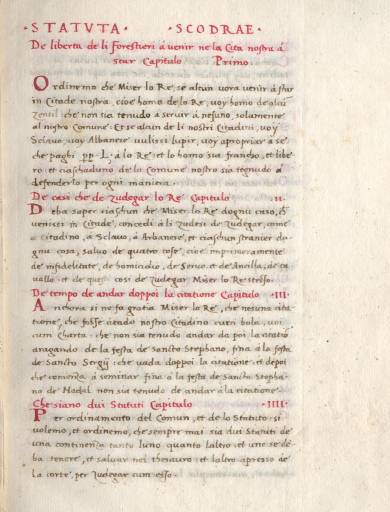 ·STATVTA· ·SCODRAE·
De liberta de li forestieri á venir ne la Cita nostra á
star Capitulo Primo.
Ordinemo che Miser lo Re, se alcun vora venir á star
in Citade nostra, cioe homo de lo Re, voy homo de alcū
Zentil che non sia tenudo a servir á nesuno, solamente
al nostro Comune. Et se alcun de li nostri Citadini, voy
Sclavo, voy Albanese vulissi lupir, voy apropriar a se
che paghi pp. L. á lo Re, et lo homo sia francho, et libe-
ro, et ciaschaduno de la Comune nostro sia tegnudo á
defenderlo per ogni maniera.
De casi che de zudegar lo Re Capitulo ·II·
Deba saper ciaschun che Miser lo Re dognu caso, ch
venissi in Citade, concedi á li zudesi de Zudegar, come
a Citadino, á Sclavo, á Arbanese, et ciaschun stranier do
gnu cosa, salvo de quatro cose, cioe imprimeramente
de infidelitate, de homicidio, de Servo, et de Ancilla, de ca
vallo. et de queste cosi de Zudegar Miser lo Re stesso.
De tempo de andar doppoi la citatione Capitulo ·III·
Anchora si ne fa gratia Miser lo Re, che nesuna cita
tione, che fosse fata ad nostro Citadino cum bola, voi
cum charta. che non sia tenudo andar da poi la citatiō
anagando de la festa de Sancto Stephano, fina á la festa
de Sancto Sergij: che vada doppoi la citatione. et depoi
che comenza á seminar fina á la festa de Sancto Stepha-
no de Nadal non sia tenudo de andar á la citatione.
Che siano dui Statuti Capitulo ·IIII·
Per ordinamento del Comun, et de lo Statuto. si
volemo, et ordinemo, che sempre mai sia dui Statuti de
una continenza tanto l'uno quanto l'altro. et uno se dé-
ba tenere, et salvar nel thesauro. et l'altro apresso de
la corte, per zudegar cum esso.